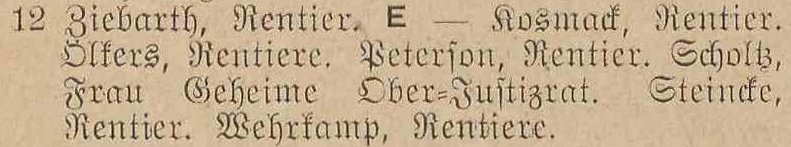 12 Ziebarth, Rentier. E — Kosmack, Rentier.
Ölkers, Rentiere. Peterson, Rentier. Scholtz,
Frau Geheime Ober-Justizrat. Steincke,
Rentier. Wehrkamp, Rentiere.